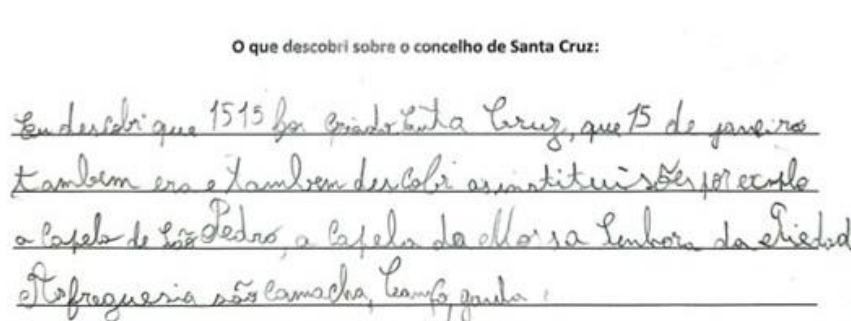 O que descobri sobre o concelho de Santa Cruz:
Eu descobri que 1515 foi criado Cruz, que 15 de janeiro
tambem era e tambem descobri as instituisões por
a Capela de São Pedro, a Capela da Nossa Senhora da Piedad
freguesia são Camacha,